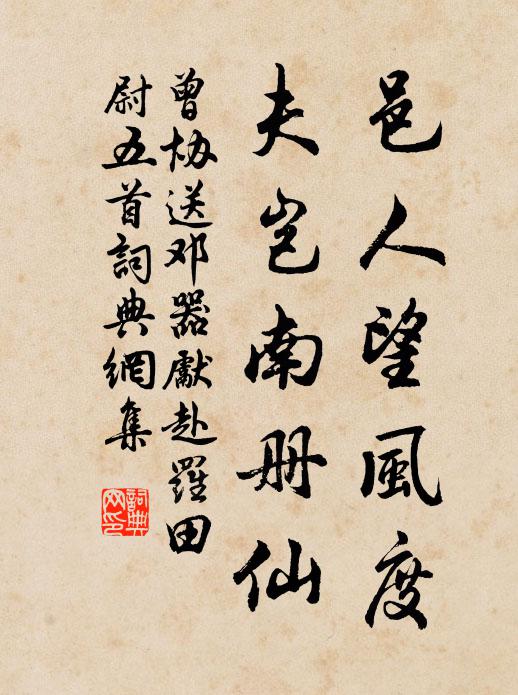 邑人望風度
夫岂南册仙
曾协送邓器獻赴羅田
尉五首詞典網集
詞典
网印